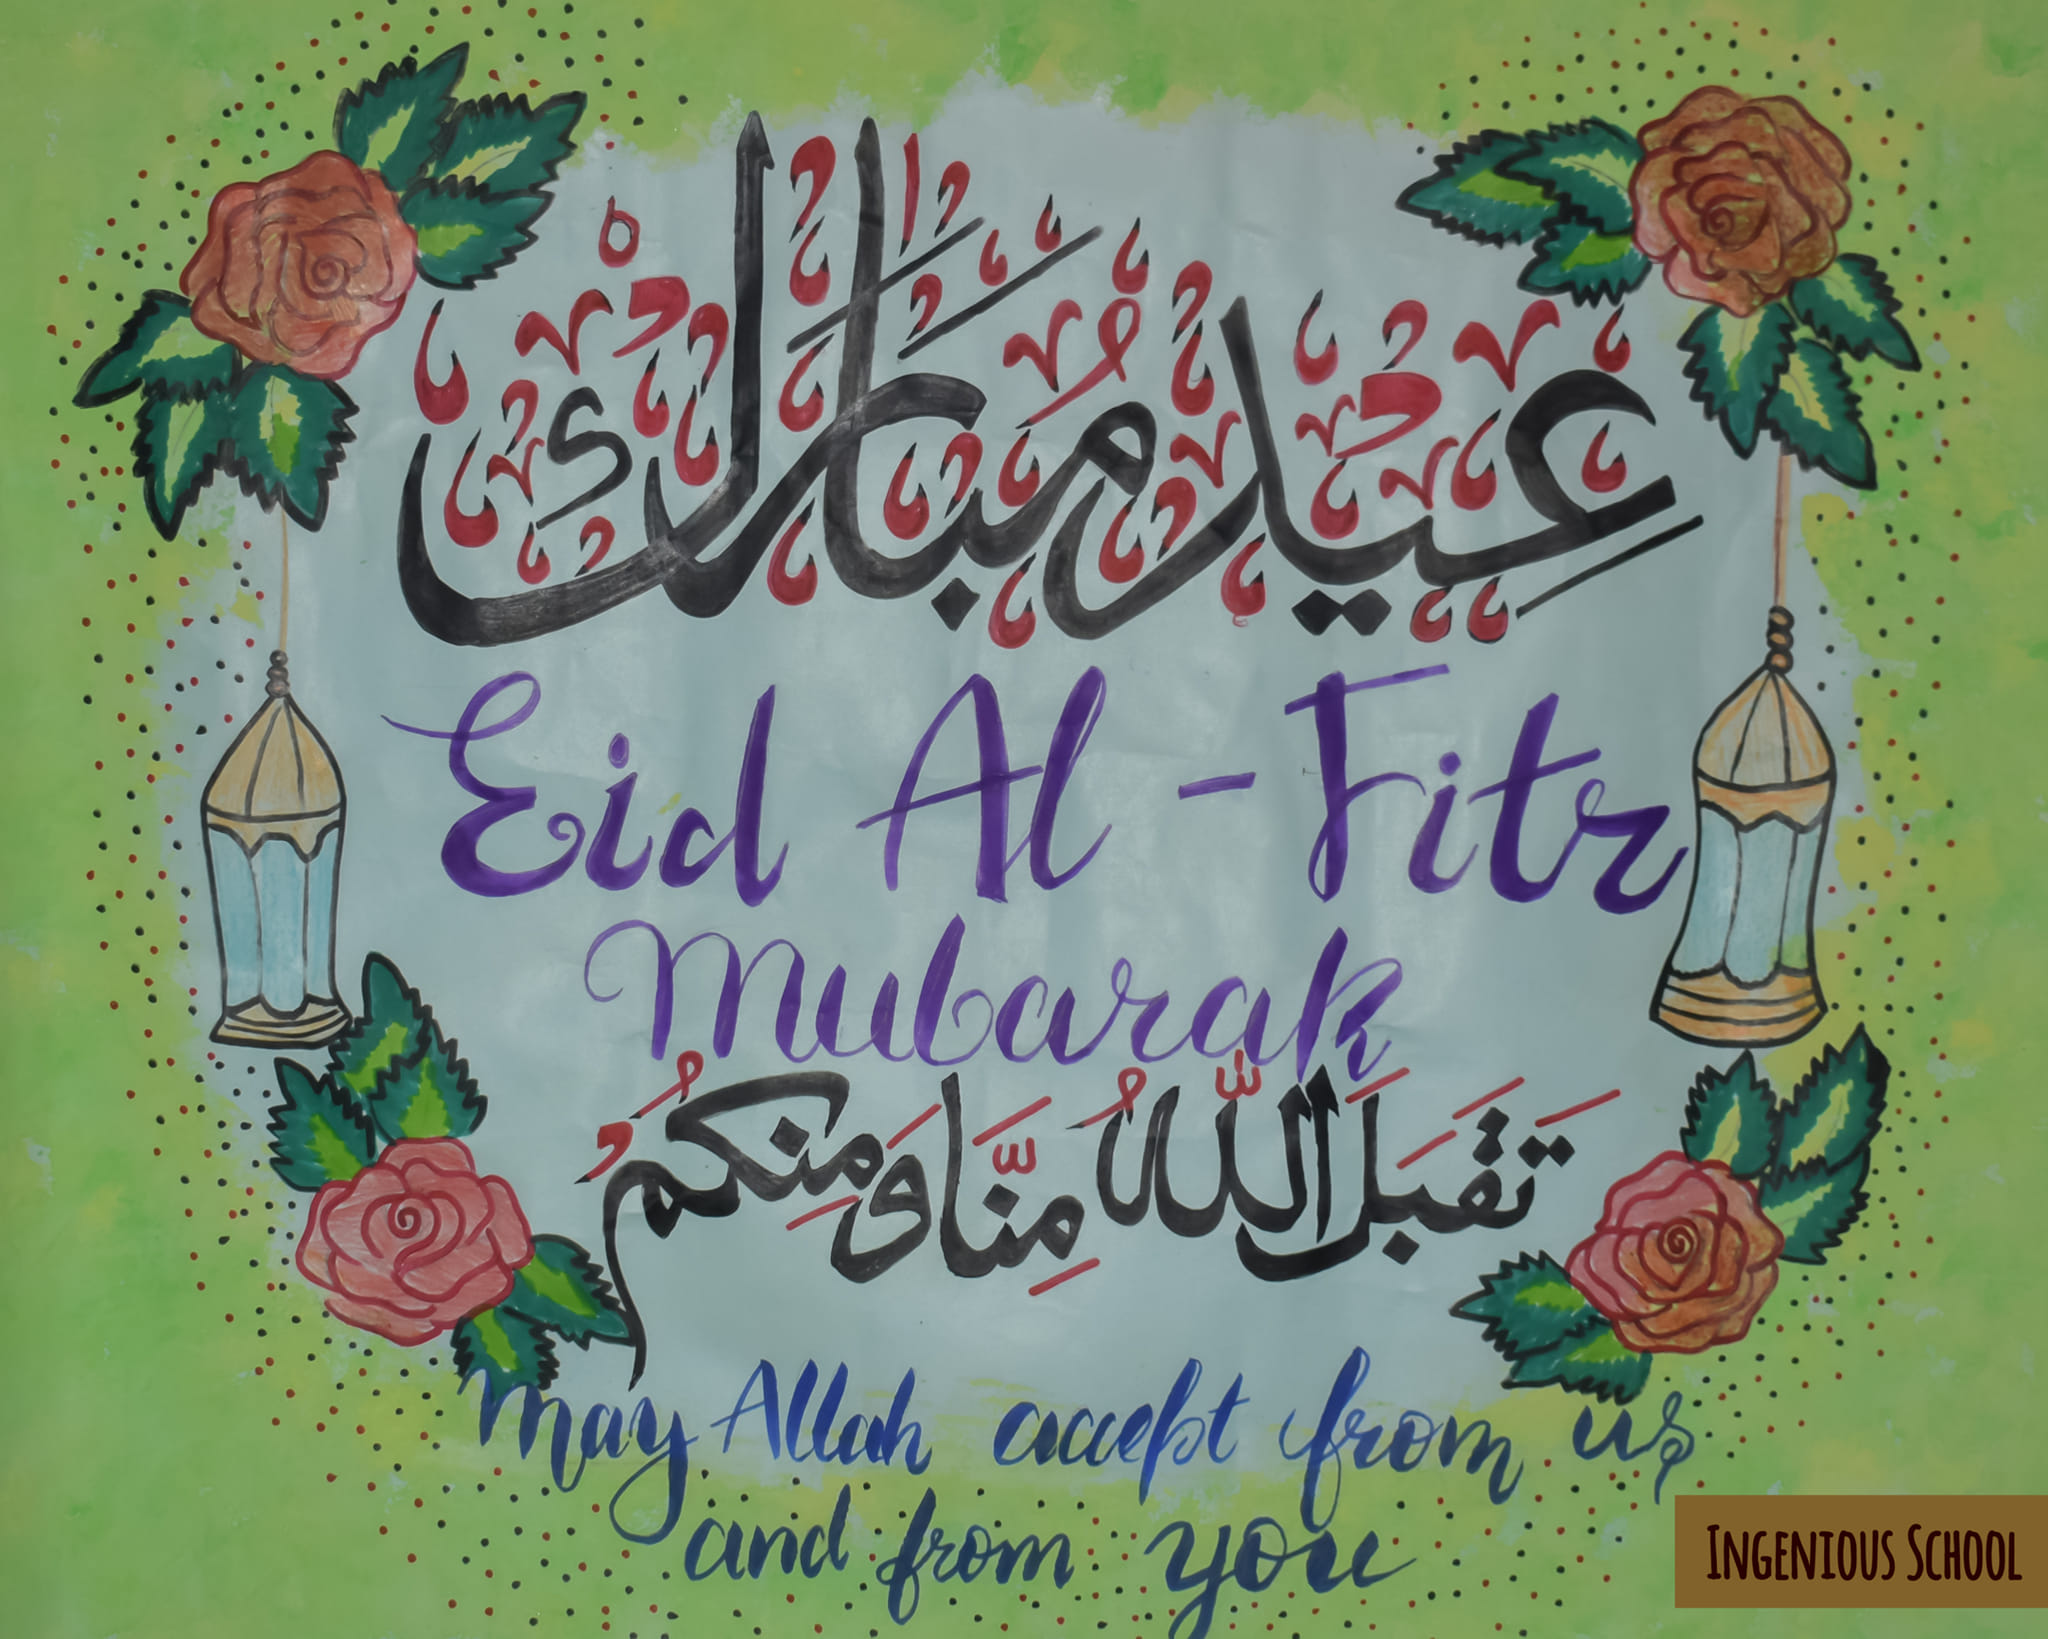 عِيد مُبَارَك
Eid Al-Fitr
Mubarak
تَقَبَلَ اللّٰهُ مِنَّا وَمِنكُمُ
May Allah accept from us
and from you
INGENIOUS SCHOOL